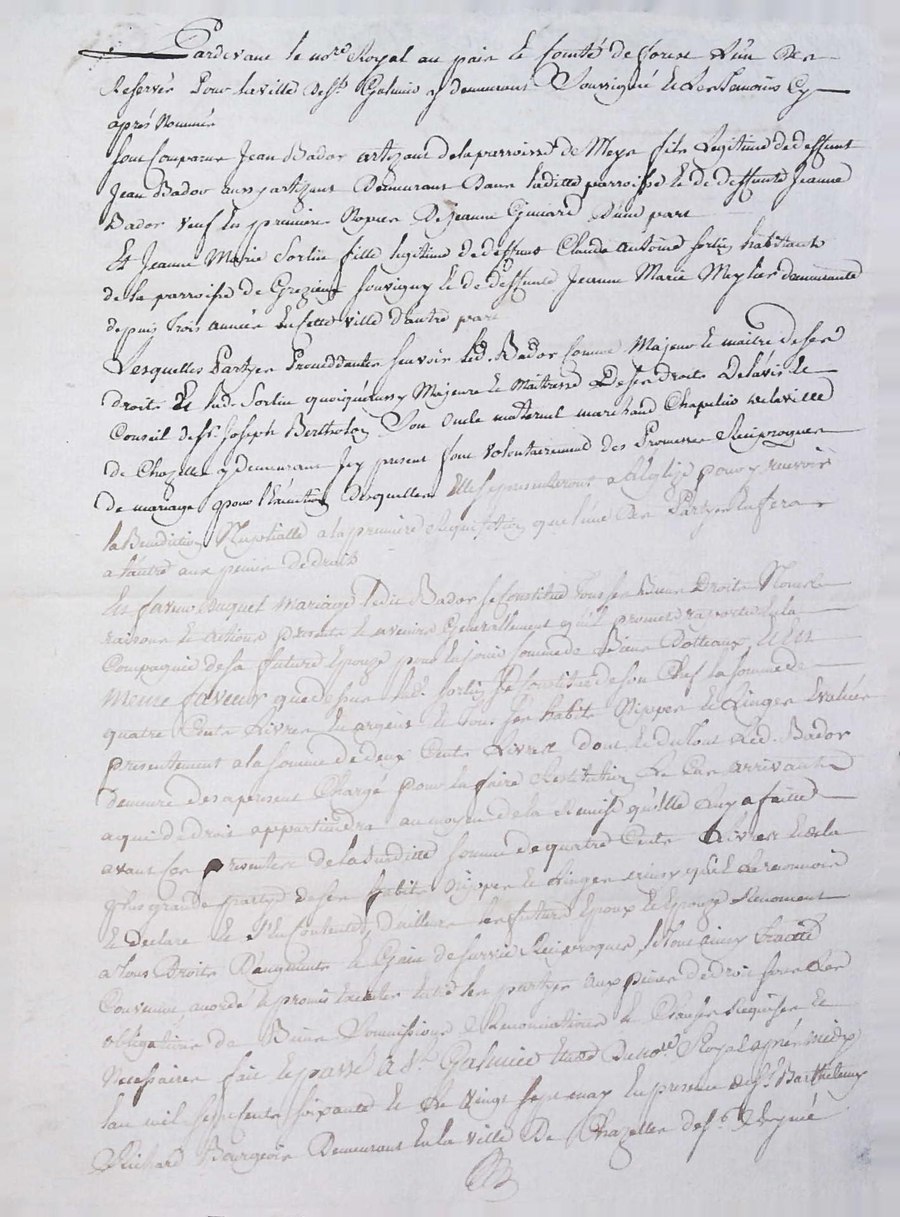 Pardevant le nore Royal au païs et Comté de forez l'un des
Reservés Pour la ville de St Galmier y demeurant Soussigné et Les Temoins Cy
aprés Nommés
sont Comparus Jean Bador artizant de la parroisse de Meys fils Legitime de deffunt
Jean Bador aussy artizant Demeurant Dans laditte parroisse et de deffunte Jeanne
Bador veuf en premiere Nopces De Jeanne d'une part
Et Jeanne Marie Sortin fille legitime de deffunt Claude Antoine Sortin habitant
de la parroisse de Grezieux Souvigny et de deffunte Jeanne Marie Meylier demeurante
depuis trois années en cette ville d'autre part
Lesquelles Partyes Procedantes sçavoir led. Bador comme Majeur et maitre de ses
droits Et lad. Sortin quoiqu'aussy Majeure et Maitresse De ses Droits De l'avis et
Conseil de Sr. Joseph Bertholon Son oncle maternel marchand Chapelier de la ville
de Chazelles y demeurant Icy present font volontairement des Promesses Reciproques
de mariage pour l'execution desquelles Elles se presenteront a l'Eglize pour y recevoir
la Benediction Nuptialle a la premiere Requisition que l'une Des Partyes en fera
a l'autre aux peines de droit
En faveur Duquel Mariage ledit Bador se Constitue Tous ses Biens Droits Noms
raisons et actions presents et avenirs Generallement qu'il promet raporter en la
Compagnie de sa future Epouze pour lui Biens Dottaux, et en
meme faveur que dessus lad. Sortin se Constitue de son Chef la somme de
quatre Cents Livres en argent et Tous ses habits Nippes et Linges Evalués
presentement a la somme de deux Cents Livres dont et du tout led. Bador
demeure des apresent Chargé pour en faire Restitution Le Cas arrivant
a qui de droit appartiendra au moyen de la Remise qu'Elle Luy a faitte
avant Ces presentes de la susditte somme de quatre Cents Livres et de la
plus grande partye de ses habits Nippes et Linges ainsy qu'il Le reconnoit
et declare et S'En Contente, d'ailleurs les futurs Epoux et Epouze Renoncent
a tous Droits D'augments et Gain de survie Reciproques, le tout ainsy Traitté
Convenu, acordé et promis entre les partyes aux peines de droit sous les
obligations de Biens Soumissions Renonciations et Clauses Requises et
Necessaires fait et passé a St. Galmier Etude du nore Royal aprés midy
l'an mil sept cents soixante et Le Vingt sept may En presence de Sr. Barthelemy
Richard Bourgeois Demeurant en la ville De Chazelles